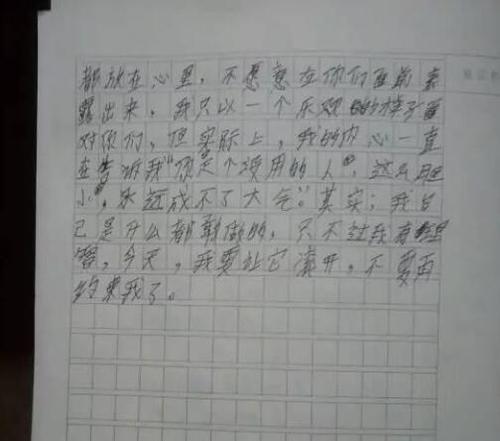 都放在心里，不愿意在你们面前表
露出来，我只以一个乐观的样子面
对你们，但实际上，我的内心一直
在告诉我“你是个没用的人，这么胆
小，永远成不了大气。”其实，我自
己是什么都敢做的，只不过我有
，今天，我要让它滚开，不要再
约束我了。